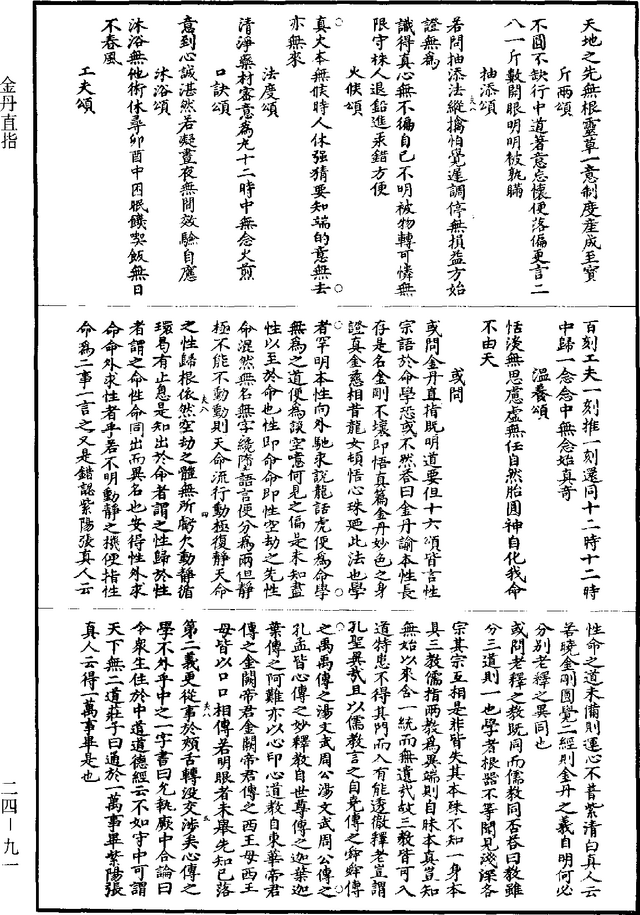 天地之先無根靈草一意制度產成至寶
斤兩頌
不圓不缺行中道著意忘懷便落偏更言二
八一斤數開眼明明被執瞞
抽添頌
若問抽添法縱擒怕覺遲調停無損益方始
證無為
識得真心無不徧自己不明被物轉可憐無
限守株人退鉛進汞錯方便
火候頌
真火本無候時人休强猜要知端的意無去
亦無來
法度頌
清淨藥材審意為先十二時中無念火煎
口訣頌
意到心誠湛然若凝晝夜無間效驗自應
沐浴頌
沐浴無他術休尋卯酉中困眠饑喫飯無日
不春風
工夫頌
百刻工夫一刻推一刻還同十二時十二時
中歸一念念中無念始真奇
溫養頌
恬淡無思慮虛無任自然胎圓神自化我命
不由天
或問
或問金丹直指既明道要但十六頌皆言性
宗語於命學恐或不然荅曰金丹諭本性長
存是名金剛不壞即悟真篇金丹妙色之身
證真金慈相昔龍女頓悟心珠迺此法也學
者罕明本性向外馳求說龍話虎便為命學
無為之道便為談空噫何見之偏是未知盡
性以至於命也性即命命即性空劫之先性
命混然無名無字纔墮語言便分為兩但靜
極不能不動動則天命流行動極復靜天命
之性歸根依然空劫之體無所虧欠動靜循
環易有止息是知出於命者謂之性歸於性
者謂之命性命同出而異名也安得性外求
命命外求性者乎若不明動靜之機便指性
命為二事一言之又是錯認紫陽張真人云
性命之道未備則運心不普紫清白真人云
若曉金剛圓覺二經則金丹之義自明何必
分別老釋之異同也
或問老釋之教既同而儒教同否荅曰教雖
分三道則一也學者根器不等聞見淺深各
宗其宗互相是非皆失其本殊不知一身本
具三教儒指兩教為異端則自昧本真豈知
無始以來含一統而無遺哉故三教皆可入
道特患不得其門而入有能透徹釋老豈謂
孔聖異哉且以儒教言之自堯傳之舜舜傳
之禹禹傳之湯文武周公湯文武周公傳之
孔孟皆心傳之妙釋教自世尊傳之迦葉迦
葉傳之阿難亦以心印心道教自東華帝君
傳之金闕帝君金闕帝君傳之西王母西王
母皆以口口相傳若明眼者未舉先知已落
第二義更從事於頰舌轉没交涉矣心傳之
學不外乎中之一字書曰允執厥中合論曰
令衆生住於中道道德經云不如守中可謂
天下無二道莊子曰通於一萬事畢紫陽張
真人云得一萬事畢是也
金丹直指
二四－九一